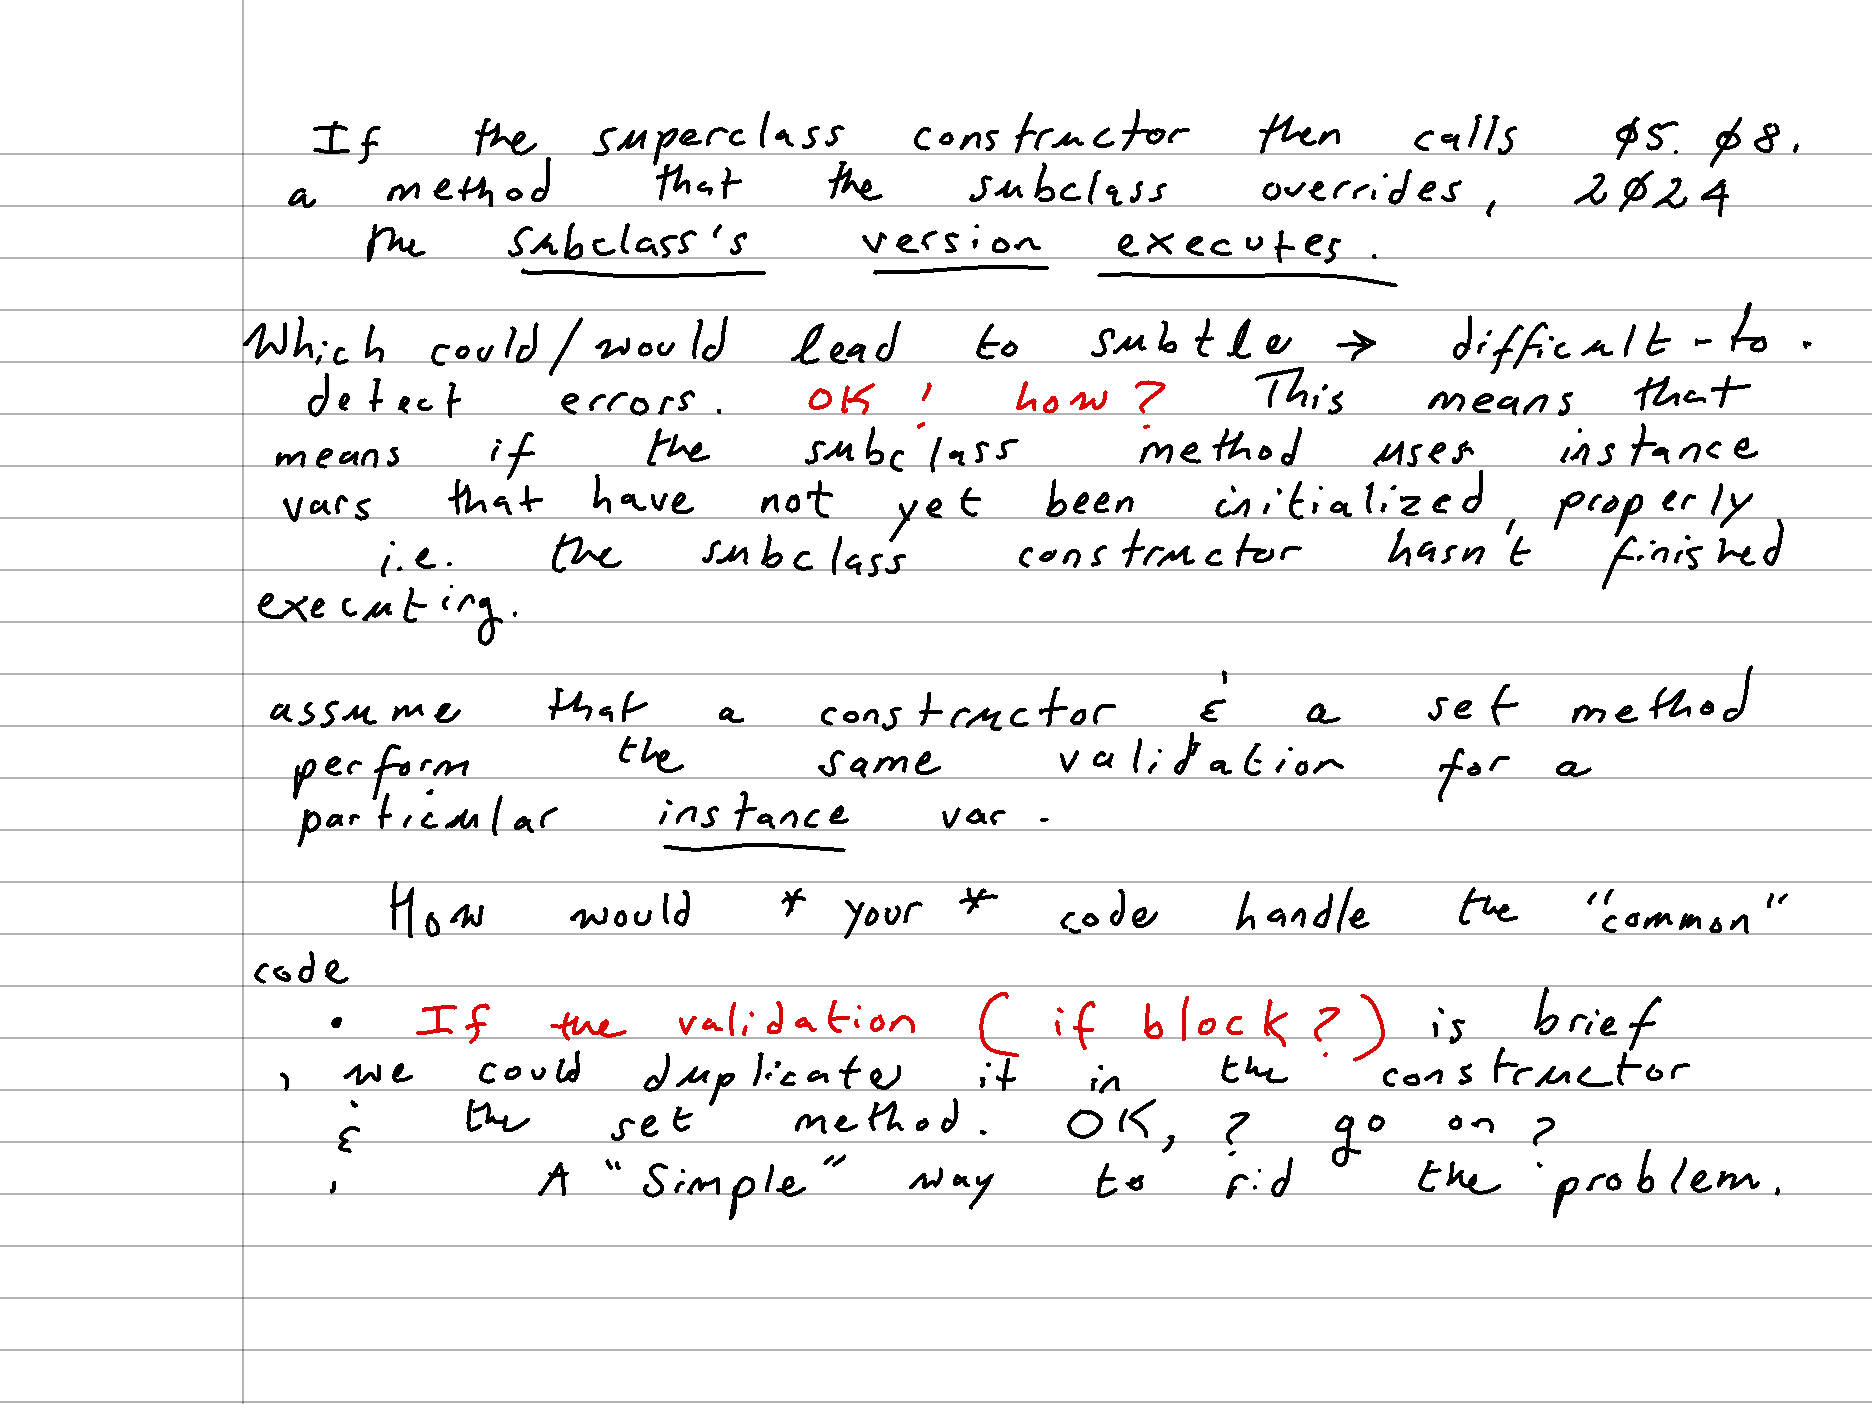 If the superclass constructor then calls ø5. ø8.
a method that the subclass overrides, 2ø24
the subclass's version executes.
Which could/would lead to subtle → difficult-to.
detect errors. OK! how? This means that
means if the subclass method uses instance
vars that have not yet been initialized, properly
i.e. the subclass constructor hasn't finished
executing.
assume that a constructor & a set method
perform the same validation for a
particular instance var.
How would * your * code handle the "common"
code
• If the validation (if block?) is brief
, we could duplicate it in the constructor
& the set method. OK, ? go on?
A "Simple" way to rid the problem.